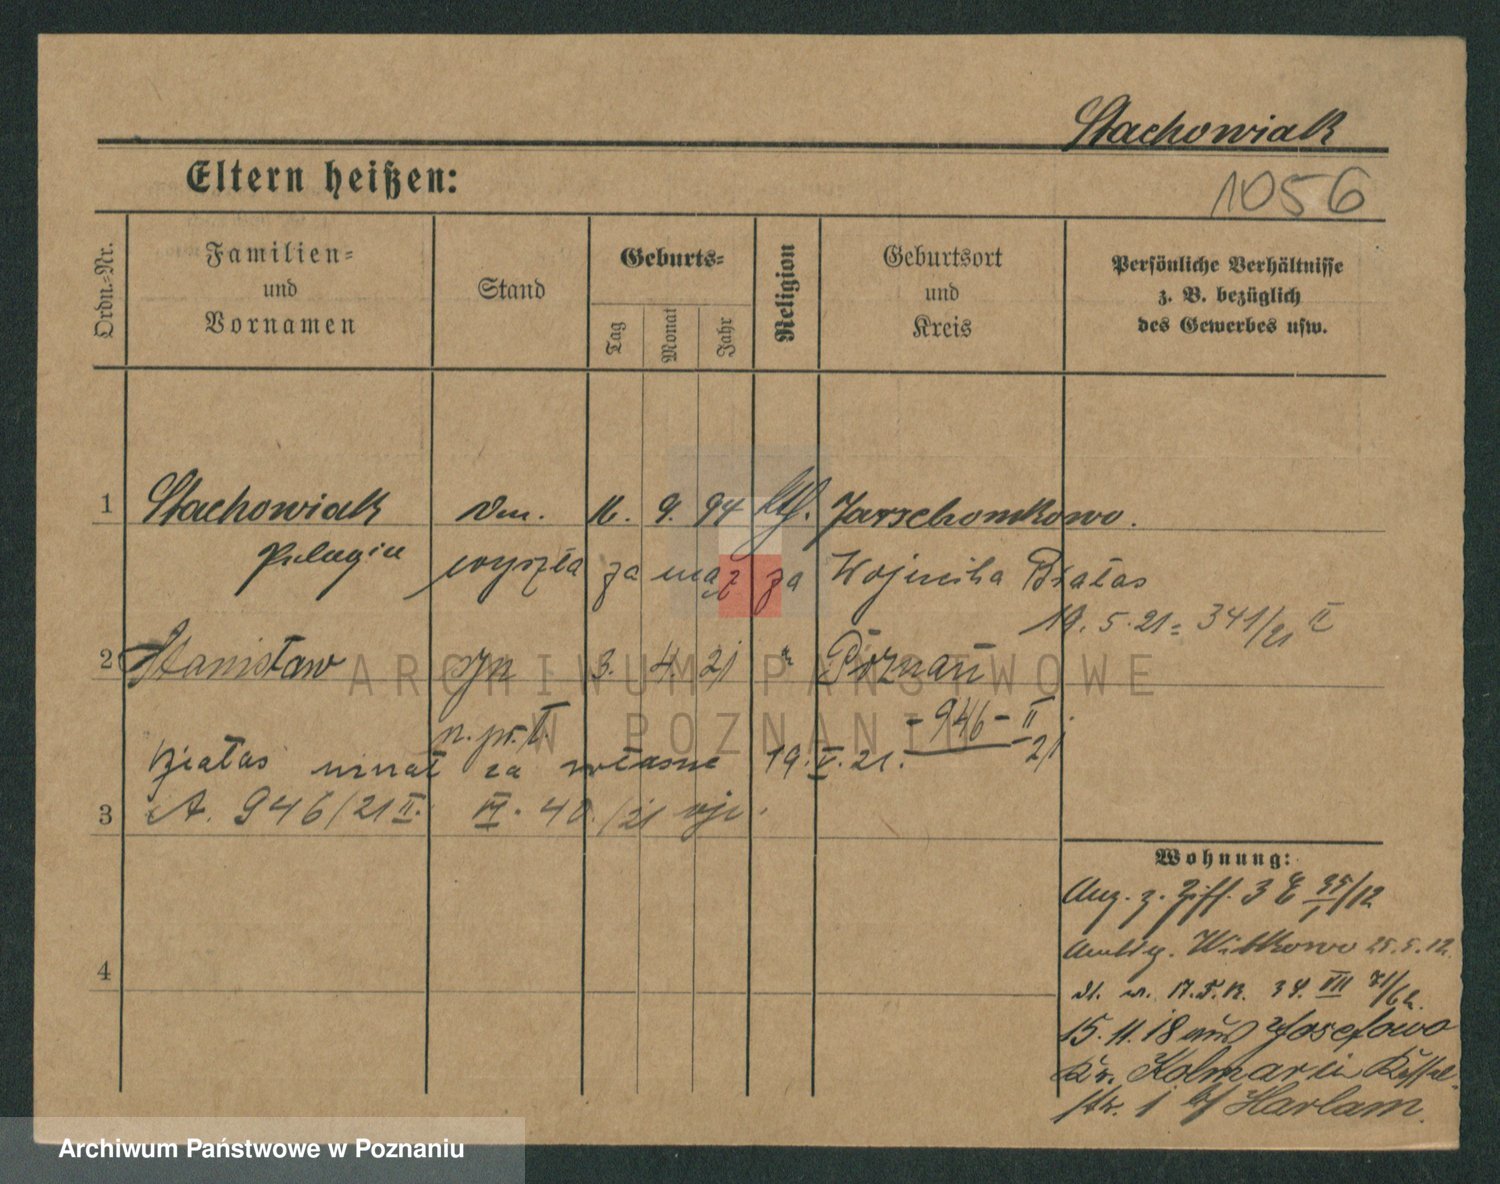 Stachowiak
Eltern heißen:
1056
Ordn.-Nr.
Familien-
und
Vornamen
Stand
Geburts-
Tag
Monat
Jahr
Religion
Geburtsort
und
Kreis
Persönliche Verhältnisse
z. B. bezüglich
des Gewerbes usw.
1 Stachowiak 16. 9. 94 Jarschomkowo.
Pelagia wyszła za mąż za Wojciecha Białas
19.5.21 = 341/21 II
2 Stanisław syn 3. 4. 21 Poznań
n. pr. - 946 - II
21
Białas uznał za własne 19.V.21.
3 A. 946/21 II. VI. 40./21
4
Wohnung:
Ang. z. Ziff. 3 E 95/12
Witkowo 25.5.12.
34. VIII 71/62.
15.11.18 aus Josefowo
Kr. Kolmar in
str. 1 b/ Harlam.
ARCHIWUM PAŃSTWOWE
W POZNANIU
Archiwum Państwowe w Poznaniu